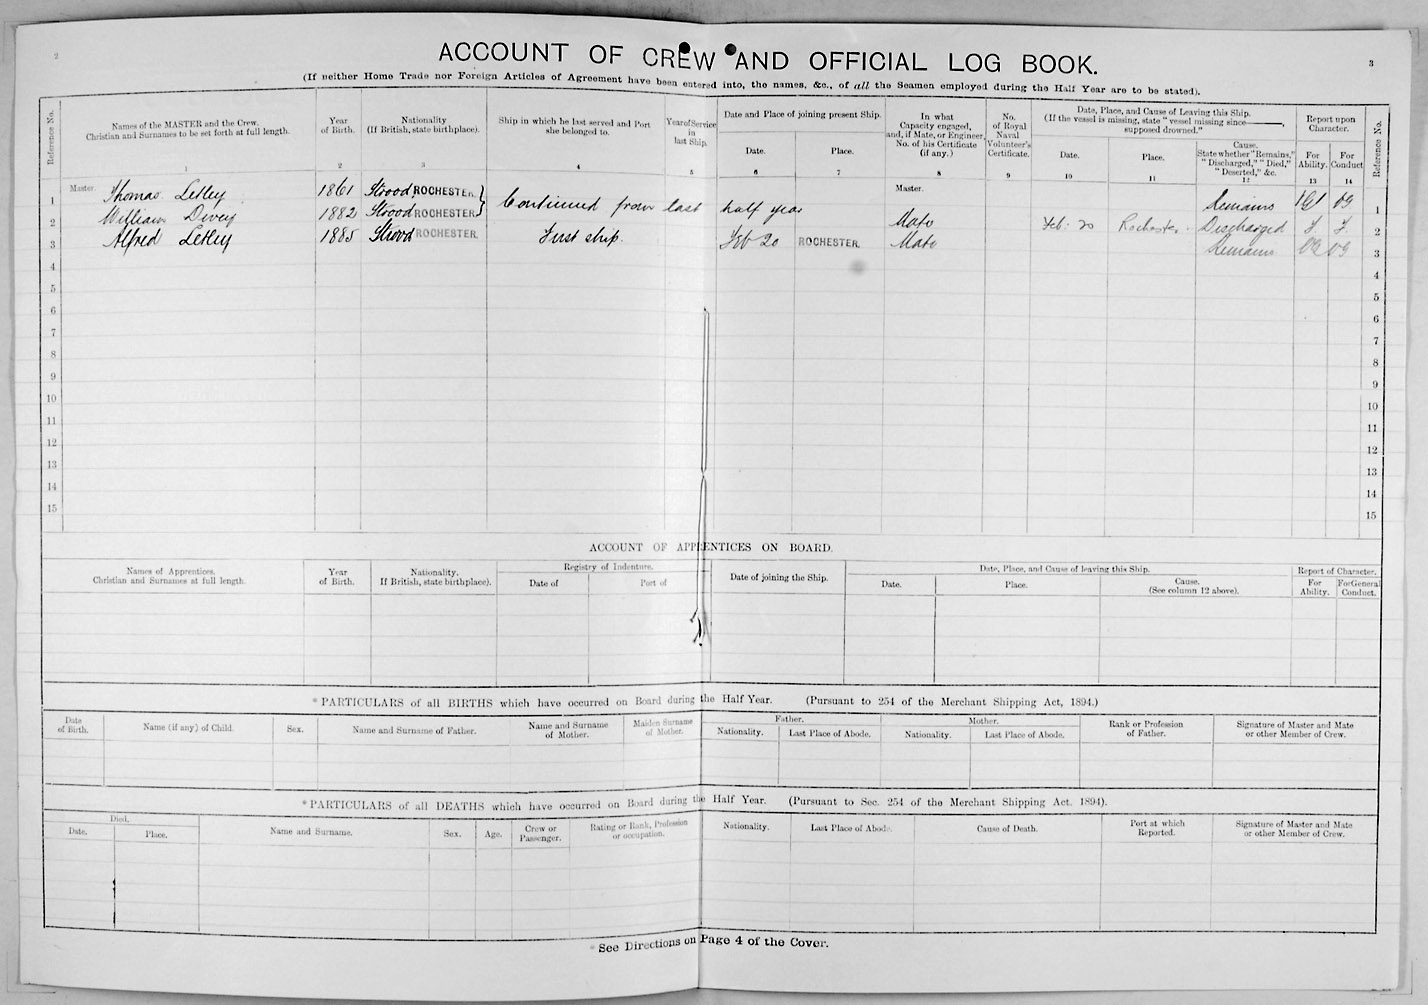 2
3
ACCOUNT OF CREW AND OFFICIAL LOG BOOK.
(If neither Home Trade nor Foreign Articles of Agreement have been entered into, the names, &c., of all the Seamen employed during the Half Year are to be stated).
Reference No.
Names of the MASTER and the Crew.
Christian and Surnames to be set forth at full length.
1
Year
of Birth.
2
Nationality
(If British, state birthplace).
3
Ship in which he last served and Port
she belonged to.
4
Year of Service
in
last Ship.
5
Date and Place of joining present Ship.
Date.
6
Place.
7
In what
Capacity engaged,
and, if Mate, or Engineer,
No. of his Certificate
(if any.)
8
No.
of Royal
Naval
Volunteer's
Certificate.
9
Date, Place, and Cause of Leaving this Ship.
(If the vessel is missing, state "vessel missing since———,
supposed drowned."
Date.
10
Place.
11
Cause.
State whether "Remains,"
"Discharged," "Died,"
"Deserted," &c.
12
Report upon
Character.
For
Ability.
13
For
Conduct
14
Reference No.
1 Master. Thomas Letley 1861 Strood ROCHESTER. } Continued from last half year Master. Remains VG VG 1
2 William Divey 1882 Strood ROCHESTER. Mate Feb: 20 Rochester. Discharged 2
3 Alfred Letley 1885 Strood ROCHESTER. First ship. Feb 20 ROCHESTER. Mate Remains VG VG 3
4 4
5 5
6 6
7 7
8 8
9 9
10 10
11 11
12 12
13 13
14 14
15 15
ACCOUNT OF APPRENTICES ON BOARD.
Names of Apprentices.
Christian and Surnames at full length.
Year
of Birth.
Nationality.
If British, state birthplace).
Registry of Indenture.
Date of
Port of
Date of joining the Ship.
Date, Place, and Cause of leaving this Ship.
Date.
Place.
Cause.
(See column 12 above).
Report of Character.
For
Ability.
For General
Conduct.
*PARTICULARS of all BIRTHS which have occurred on Board during the Half Year. (Pursuant to 254 of the Merchant Shipping Act, 1894.)
Date
of Birth.
Name (if any) of Child.
Sex.
Name and Surname of Father.
Name and Surname
of Mother.
Maiden Surname
of Mother.
Father.
Nationality.
Last Place of Abode.
Mother.
Nationality.
Last Place of Abode.
Rank or Profession
of Father.
Signature of Master and Mate
or other Member of Crew.
*PARTICULARS of all DEATHS which have occurred on Board during the Half Year. (Pursuant to Sec. 254 of the Merchant Shipping Act. 1894).
Died.
Date.
Place.
Name and Surname.
Sex.
Age.
Crew or
Passenger.
Rating or Rank, Profession
or occupation.
Nationality.
Last Place of Abode.
Cause of Death.
Port at which
Reported.
Signature of Master and Mate
or other Member of Crew.
*See Directions on Page 4 of the Cover.